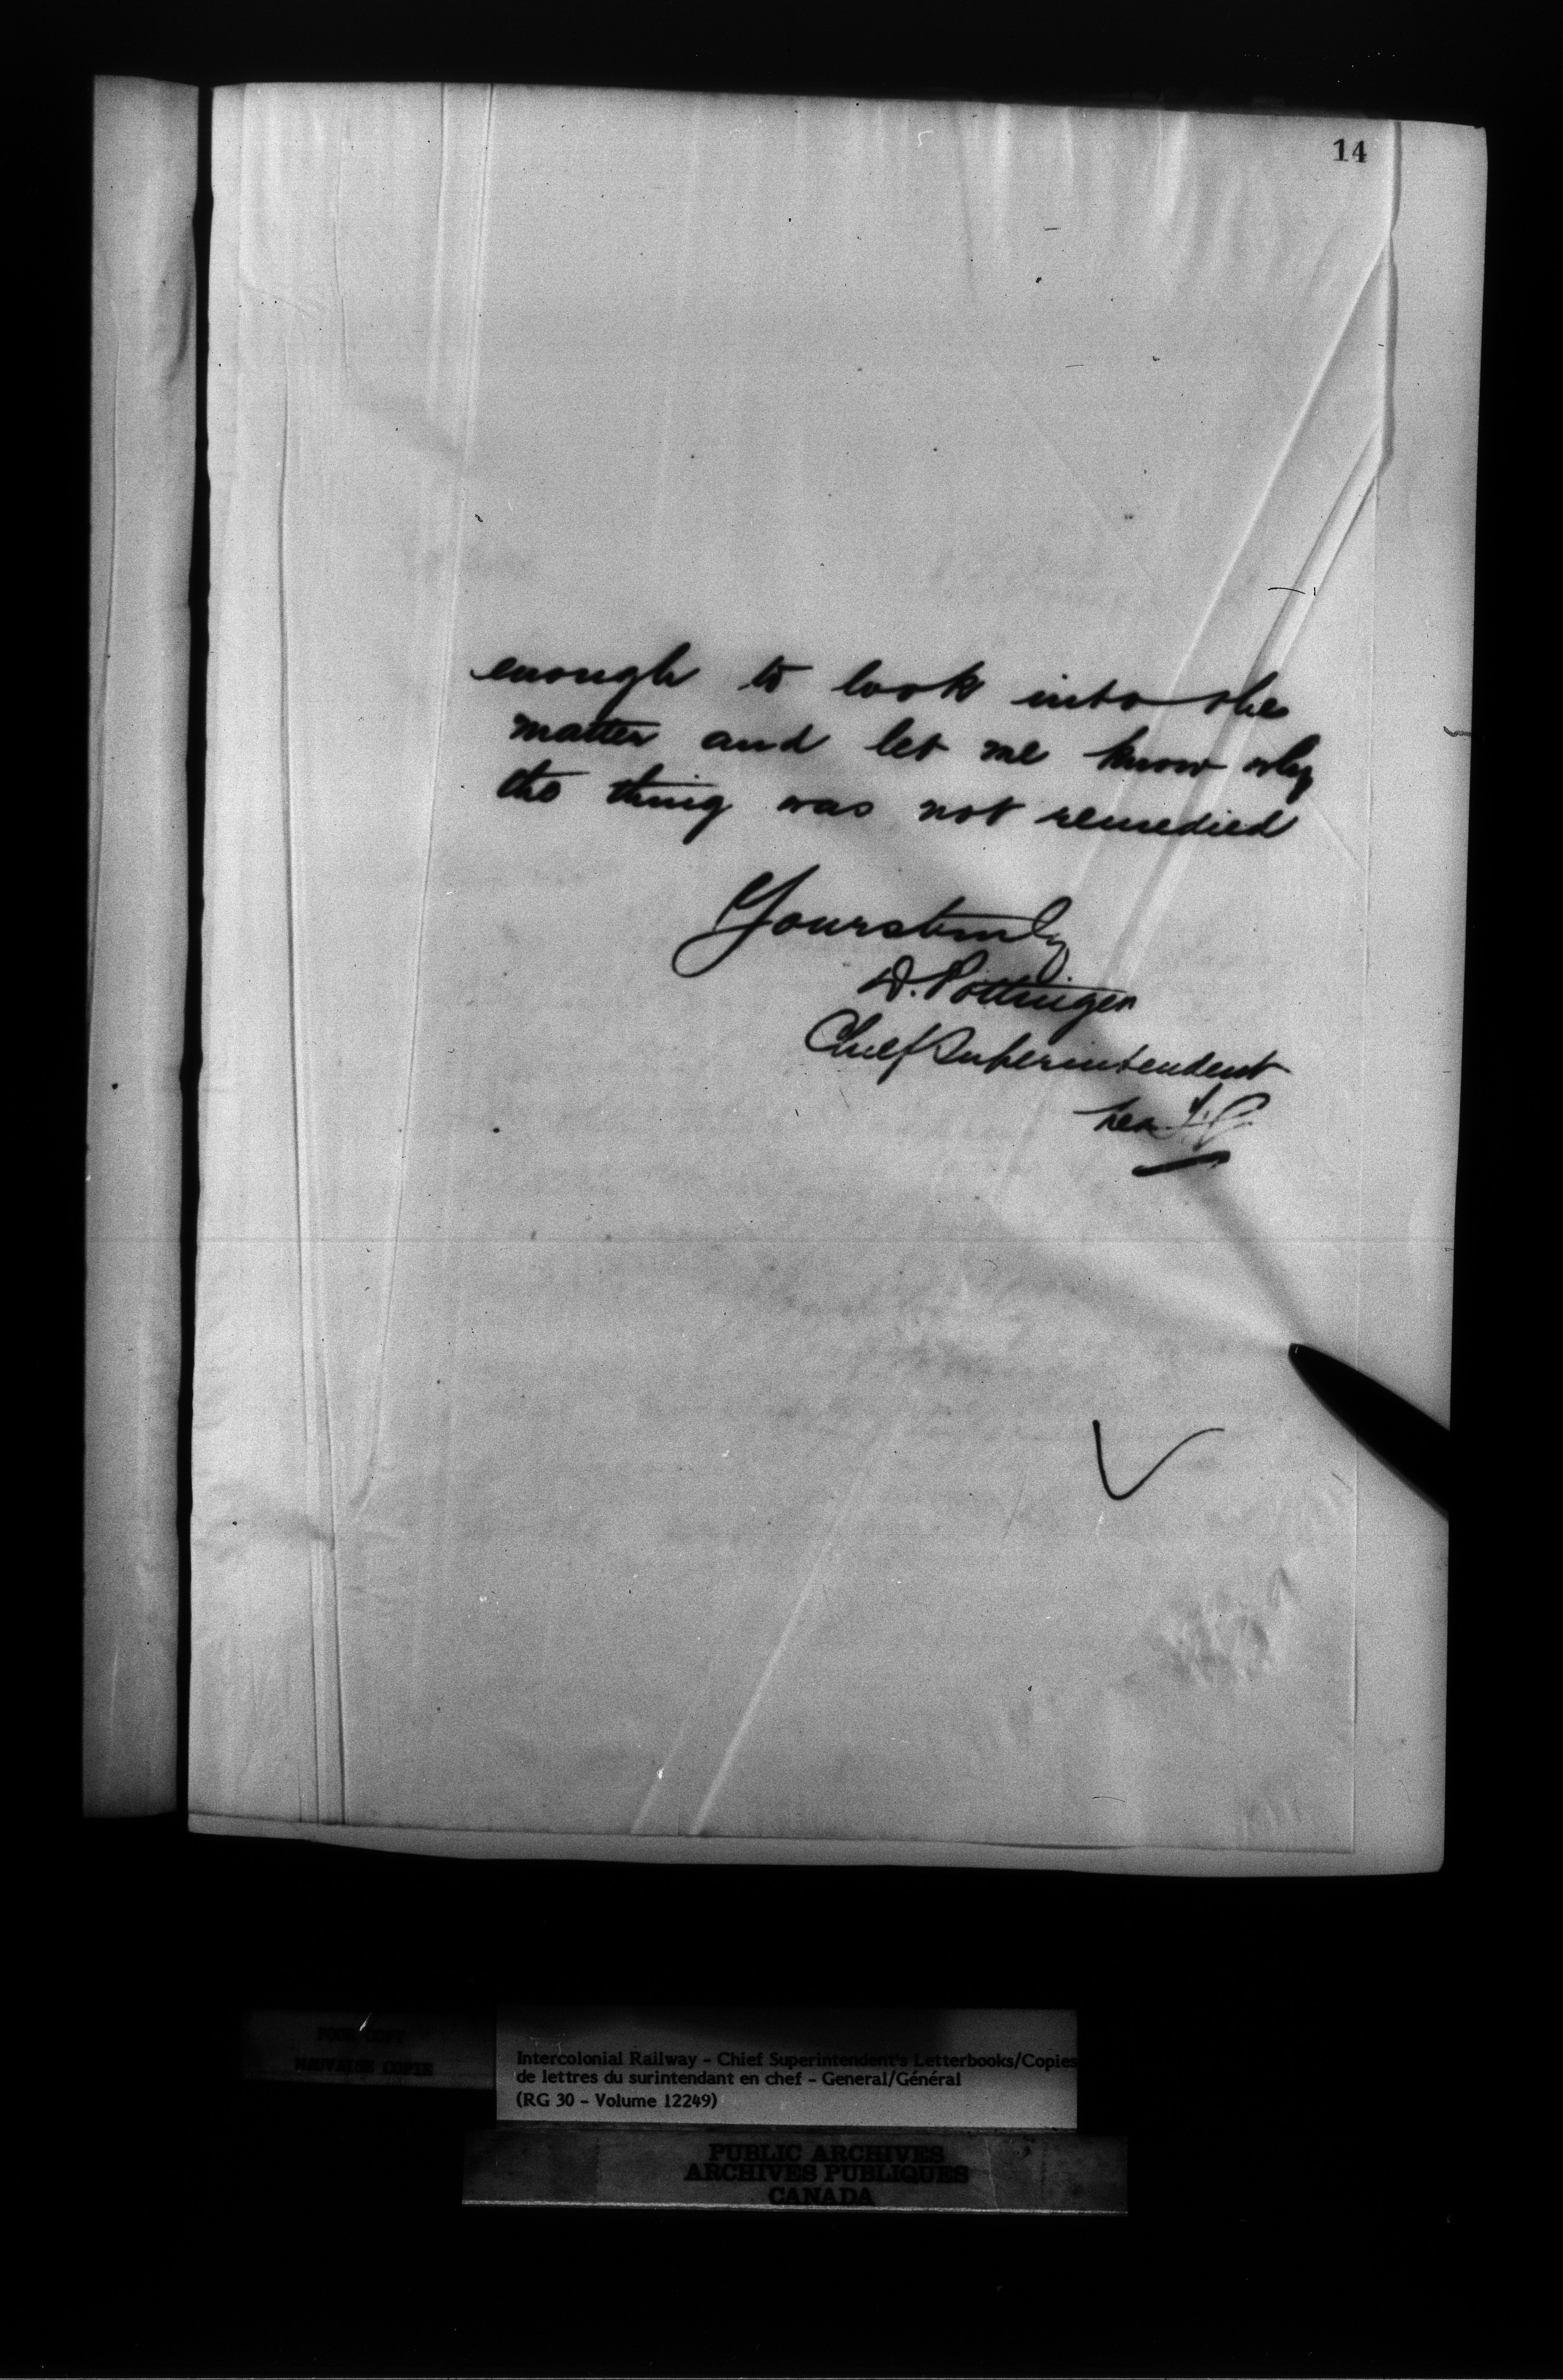 14
enough to look into the
matter and let me know why
the thing was not remedied
Yours truly
D. Pottinger
Chief Superintendent
per
POOR COPY
MAUVAISE COPIE
Intercolonial Railway - Chief Superintendent's Letterbooks/Copies
de lettres du surintendant en chef - General/Général
(RG 30 - Volume 12249)
PUBLIC ARCHIVES
ARCHIVES PUBLIQUES
CANADA